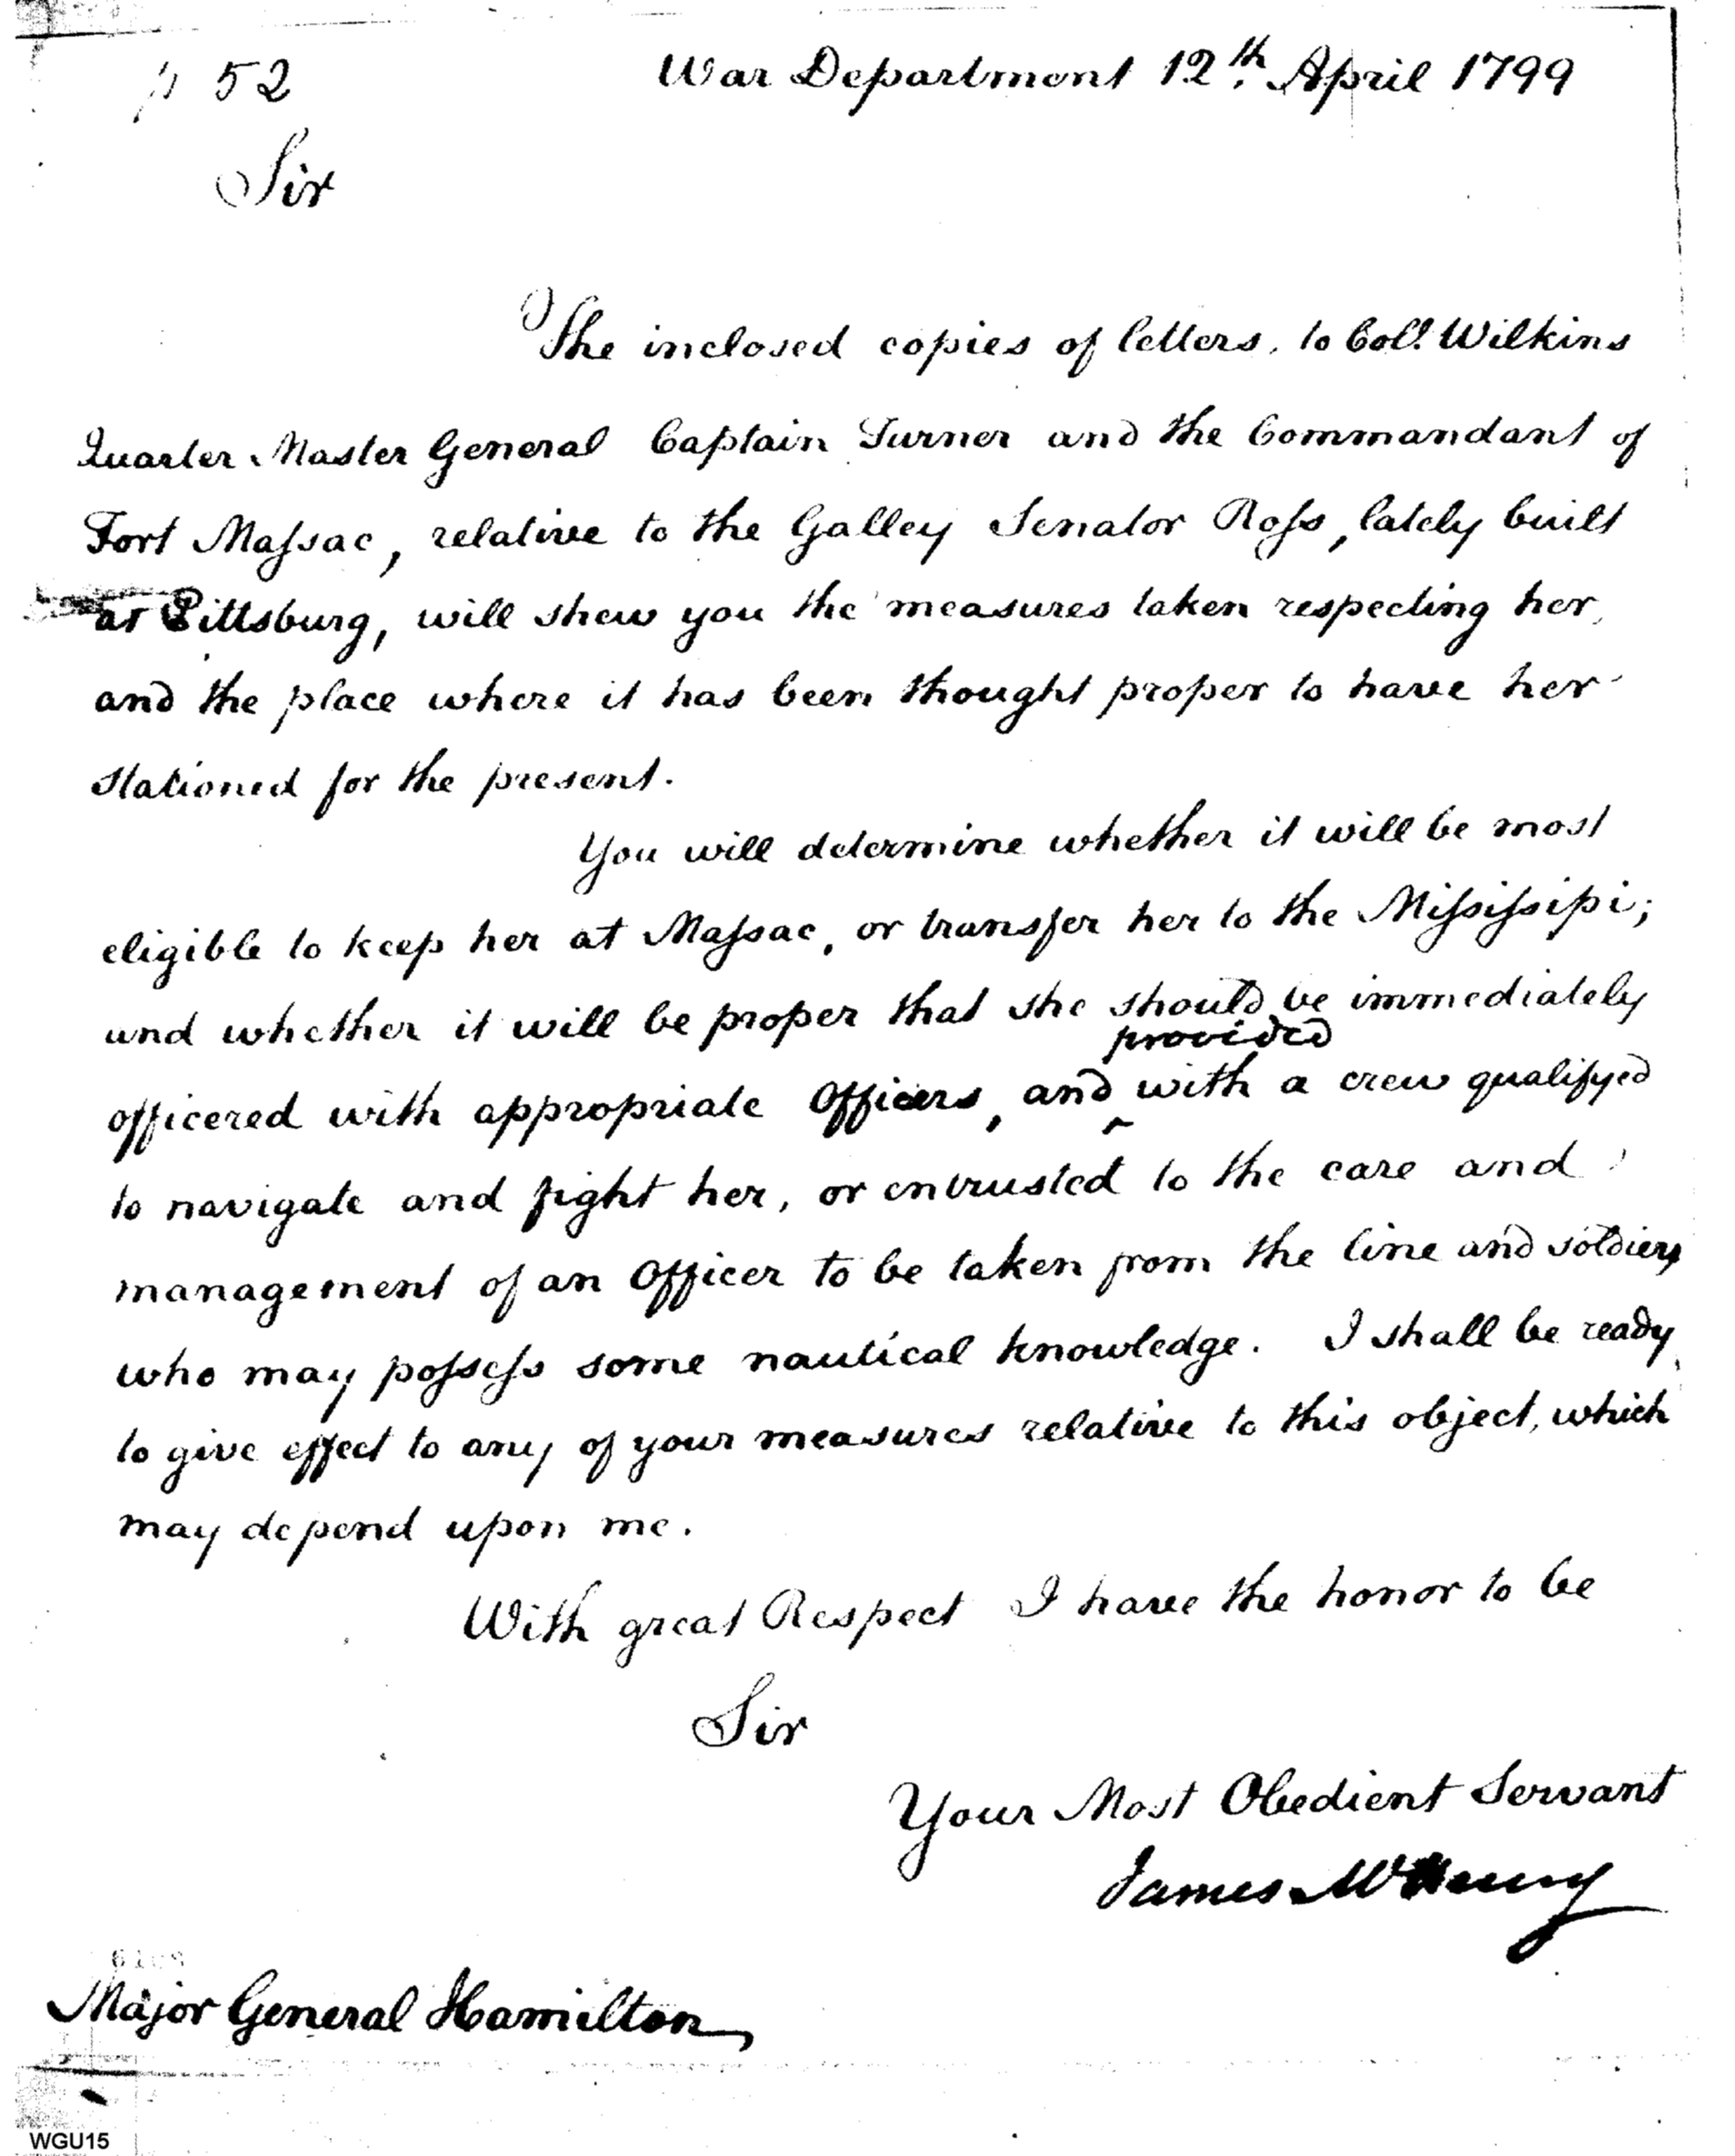 52
War Department 12th. April 1799
Sir
The inclosed copies of letters, to Coll. Wilkins
Quarter Master General Captain Turner and the Commandant of
Fort Massac, relative to the Galley Senator Ross, lately built
at Pittsburg, will shew you the measures taken respecting her,
and the place where it has been thought proper to have her
stationed for the present.
You will determine whether it will be most
eligible to keep her at Massac, or transfer her to the Missisippi;
and whether it will be proper that she should be immediately
provided
officered with appropriate Officers, and with a crew qualifyed
to navigate and fight her, or entrusted to the care and
management of an Officer to be taken from the line and soldiers
who may possess some nautical knowledge. I shall be ready
to give effect to any of your measures relative to this object, which
may depend upon me.
With great Respect I have the honor to be
Sir
Your Most Obedient Servant
James McHenry
Major General Hamilton
WGU15